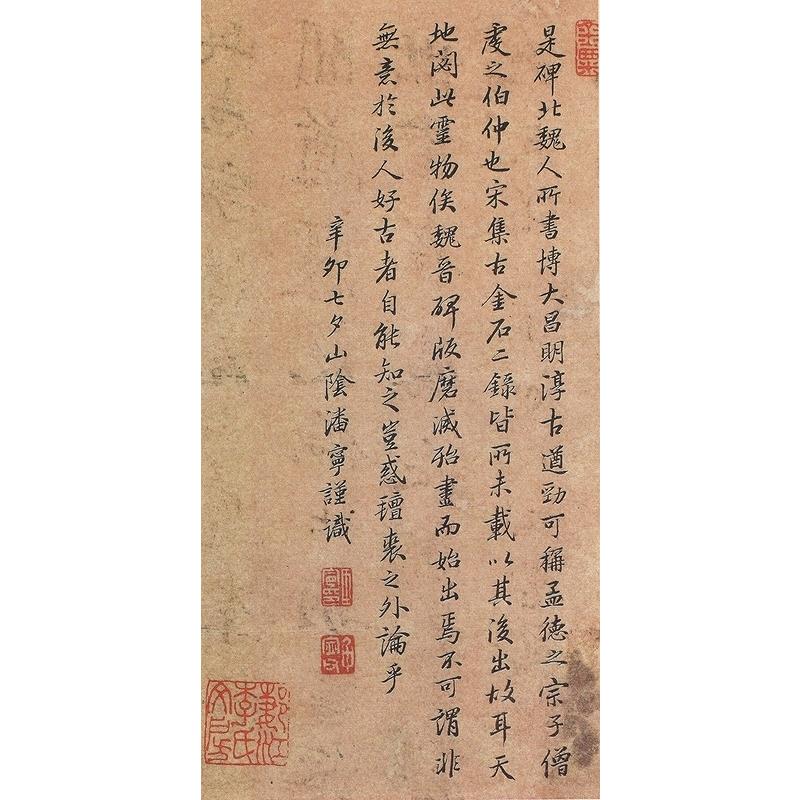 是碑北魏人所書博大昌明淳古遒勁可稱孟德之宗子僧
虔之伯仲也宋集古金石二錄皆所未載以其後出故耳天
地閟此靈物俟魏晉碑版磨滅殆盡而始出焉不可謂非
無意於後人好古者自能知之豈惑氊裘之外論乎
辛卯七夕山陰潘寧謹識